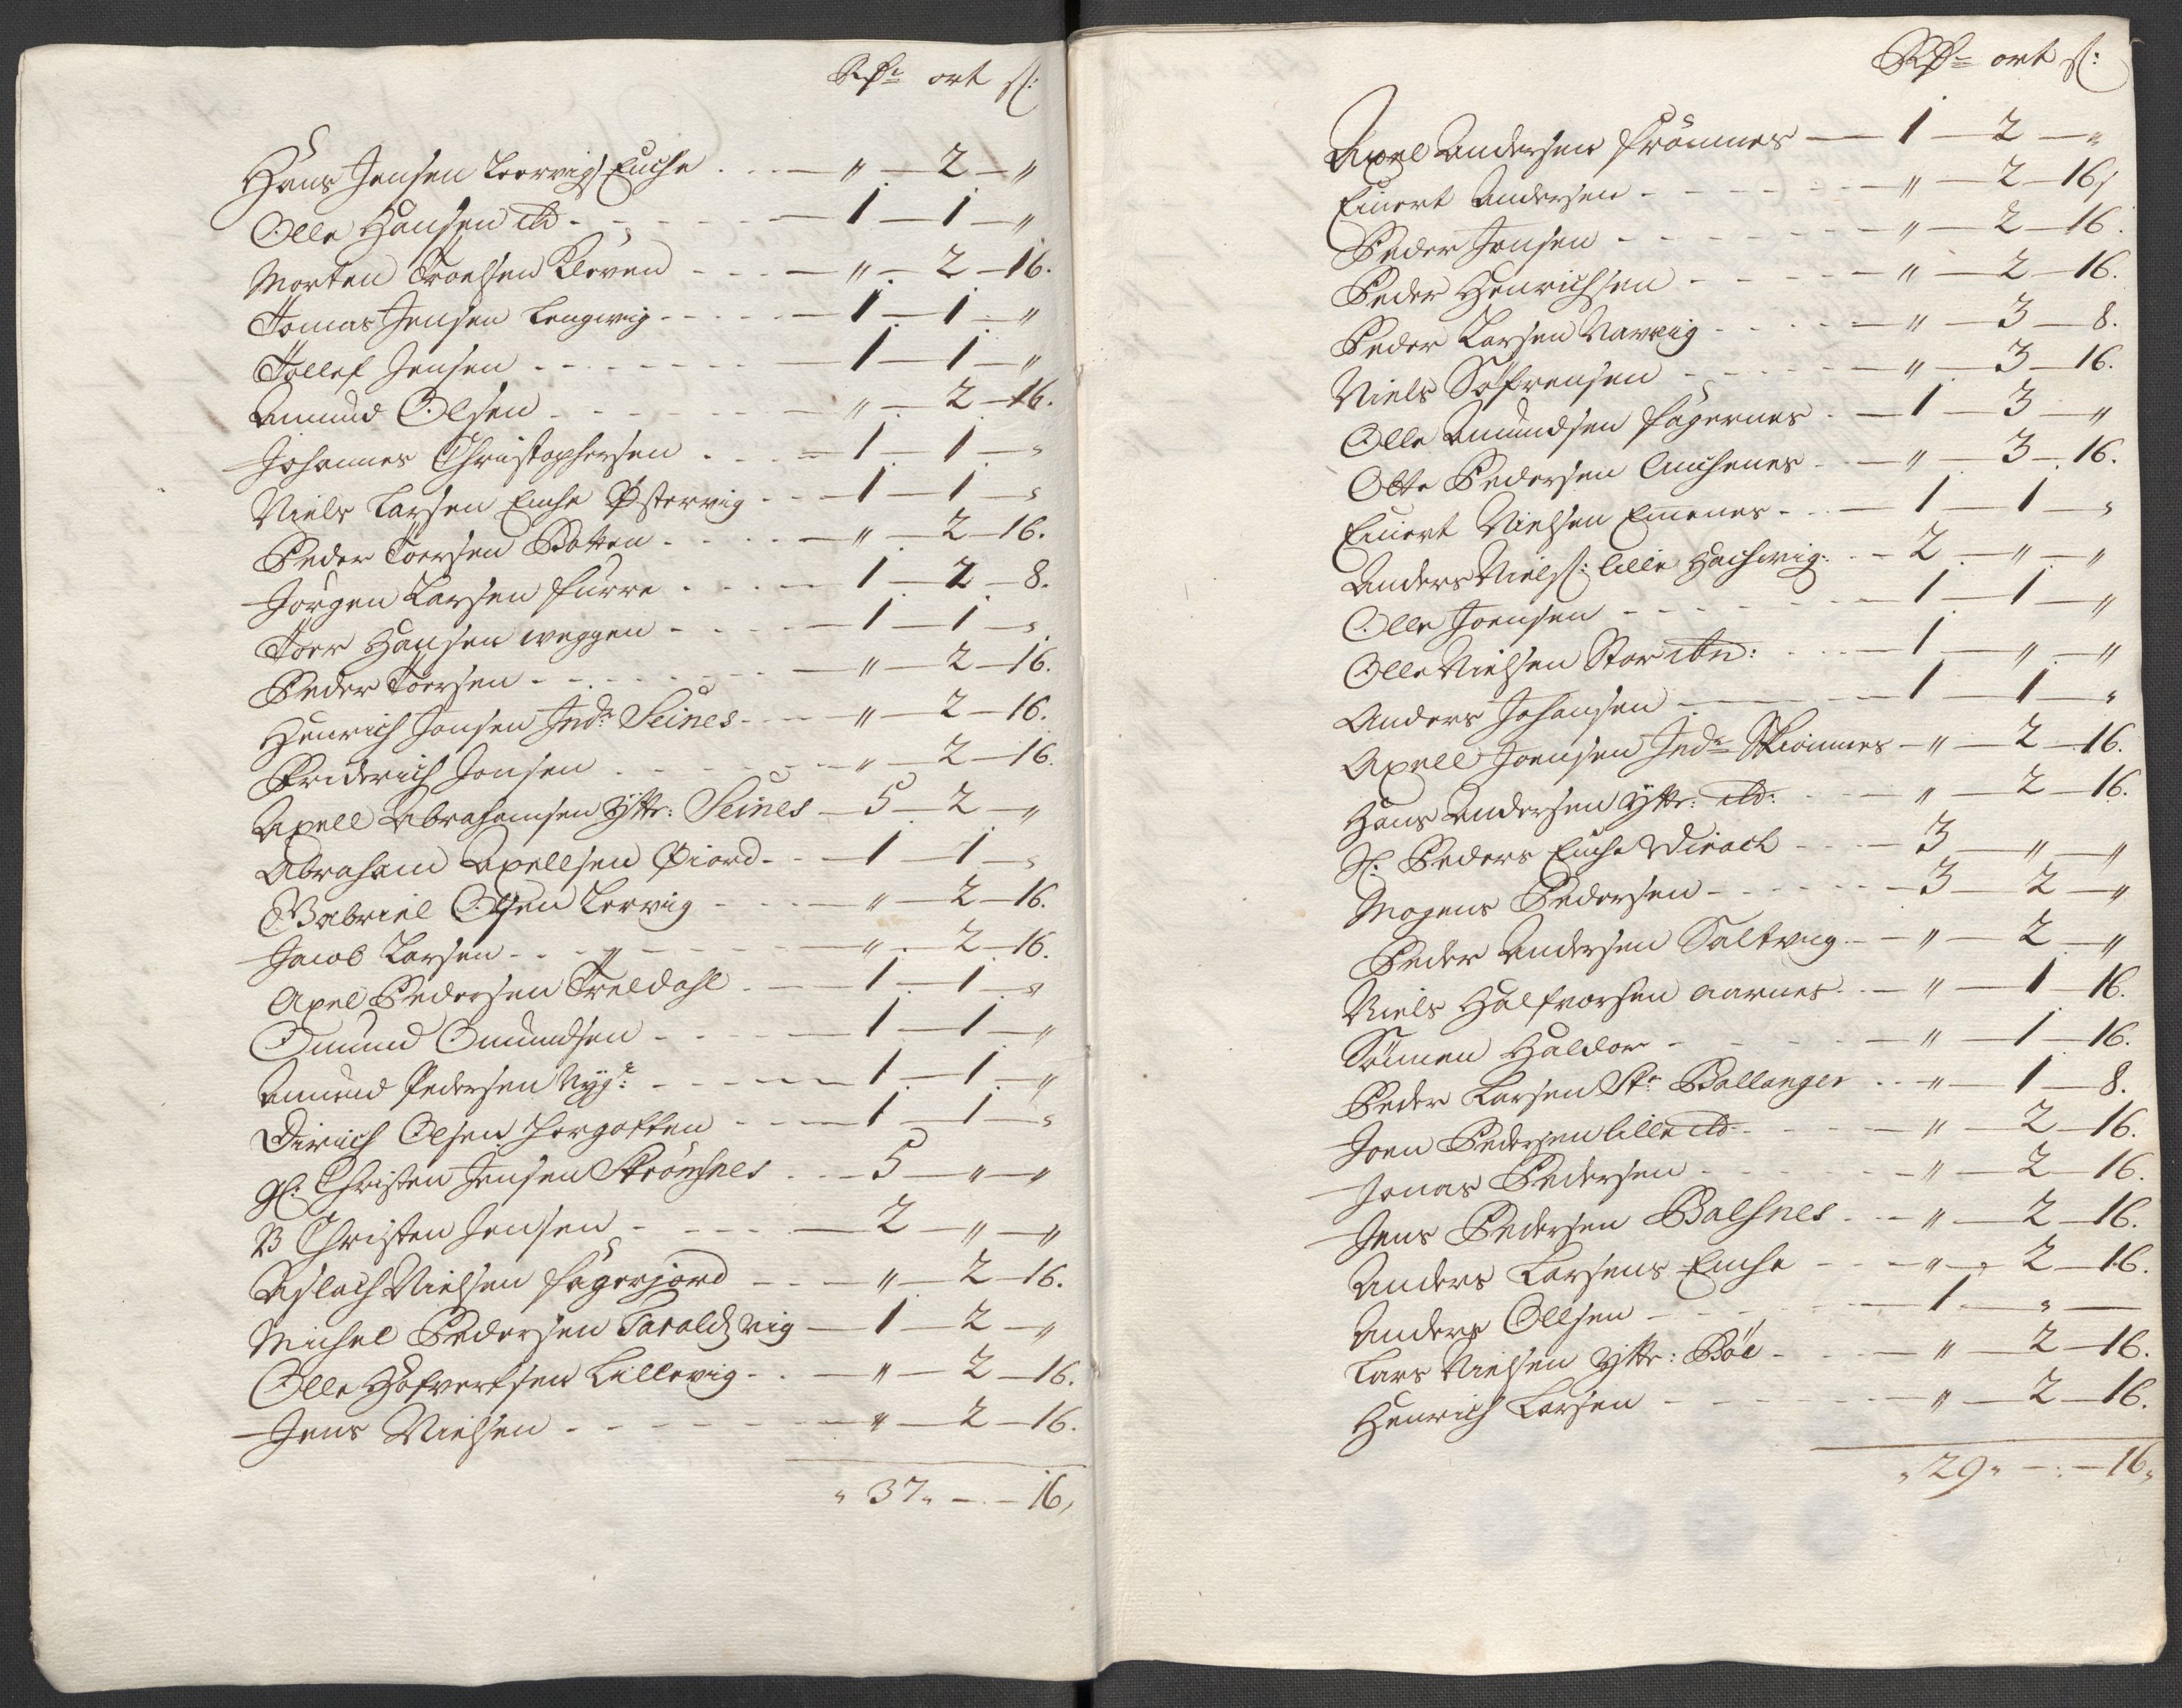 Rdr ort s:
Hans Jensen Leervigs Enche . . . — " — 2 — "
Olle Hansen ibd - - - — 1 — 1 — "
Morten Troelsen Kleven - - - — " — 2 — 16.
Tomas Jensen Lengvig - - - — 1 — 1 — "
Tollef Jensen - - - — 1 — 1 — "
Amund Olsen - - - — " — 2 — 16.
Johannes Christophersen . - - — 1 — 1 — "
Niels Larsen Enche Østervig - - — 1 — 1 — "
Peder Toersen Botten - - - — " — 2 — 16.
Jørgen Larsen Furre - - - — 1 — 2 — 8.
Toer Hansen Weggen - - - — 1 — 1 — "
Peder Toersen - - - — " — 2 — 16.
Henrich Jonsen Indr Seines - - — " — 2 — 16.
Friderich Jonsen - - - — " — 2 — 16.
Axell Abrahamsen Yttr: Seines — 5 — 2 — "
Abraham Axellsen Øiord - - — 1 — 1 — "
Gabriel Olsen Lervig - - - — " — 2 — 16.
Jacob Larsen - - " - - — " — 2 — 16.
Axel Pedersen Treldahl - - — 1 — 1 — "
Omund Omundsen - - - — 1 — 1 — "
Amund Pedersen Nygr: - - - — 1 — 1 — "
Dirich Olsen Forgotten - - - — 1 — 1 — "
gl: Christen Jensen Strømsnes - - — 5 — " — "
V Christen Jensen - - - — 2 — " — "
Aslach Nielsen Fagerjord - - — " — 2 — 16.
Michel Pedersen Taraldzvig — 1 — 2 — "
Olle Hofvertsen Lillevig - - — " — 2 — 16.
Jens Nielsen - - - — " — 2 — 16.
" 37 " — . — 16,
Rdr ort s:
Axel Andersen Frømnes — 1 — 2 — "
Einert Andersen - - - — " — 2 — 16,
Peder Jensen - - - — " — 2 — 16.
Peder Henrichsen - - - — " — 2 — 16.
Peder Larsen Narvig - - - — " — 3 — 8.
Niels Søfrensen - - - — " — 3 — 16.
Olle Amundsen Fagernes . — 1 — 3 — "
Otte Pedersen Anchenes - — " — 3 — 16.
Einert Nielsen Emenes - - — 1 — 1 — "
Anders Niels: Lille Hachvig: - — 2 — " — "
Olle Joensen - - - — 1 — 1 — "
Olle Nielsen Stor ibn: - - — 1 — " — "
Anders Johansen - - - — 1 — 1 — "
Axell Joensen Indr Skiomnes — " — 2 — 16.
Hans Andersen Yttr: ibd: - - — " — 2 — 16.
Sl: Peders Enche Virach - - — 3 — " — "
Mogens Pedersen - - - — 3 — 2 — "
Peder Andersen Saltvig - — " — 2 — "
Niels Halfvorsen Aarnes - — " — 1 — 16.
Sønnen Haldor - - - — " — 1 — 16.
Peder Larsen Str Ballanger - - " — 1 — 8.
Joen Pedersen Lille ibd - - — " — 2 — 16.
Jonas Pedersen - - - — " — 2 — 16.
Jens Pedersen Balsnes - - " — 2 — 16.
Anders Larsens Enche - - — " — 2 — 16.
Anders Ollsen - - - — 1 — " —
Lars Nielsen Yttr: Bøe - - — " — 2 — 16.
Henrich Larsen - - - — " — 2 — 16.
" 29 " — : — 16 "